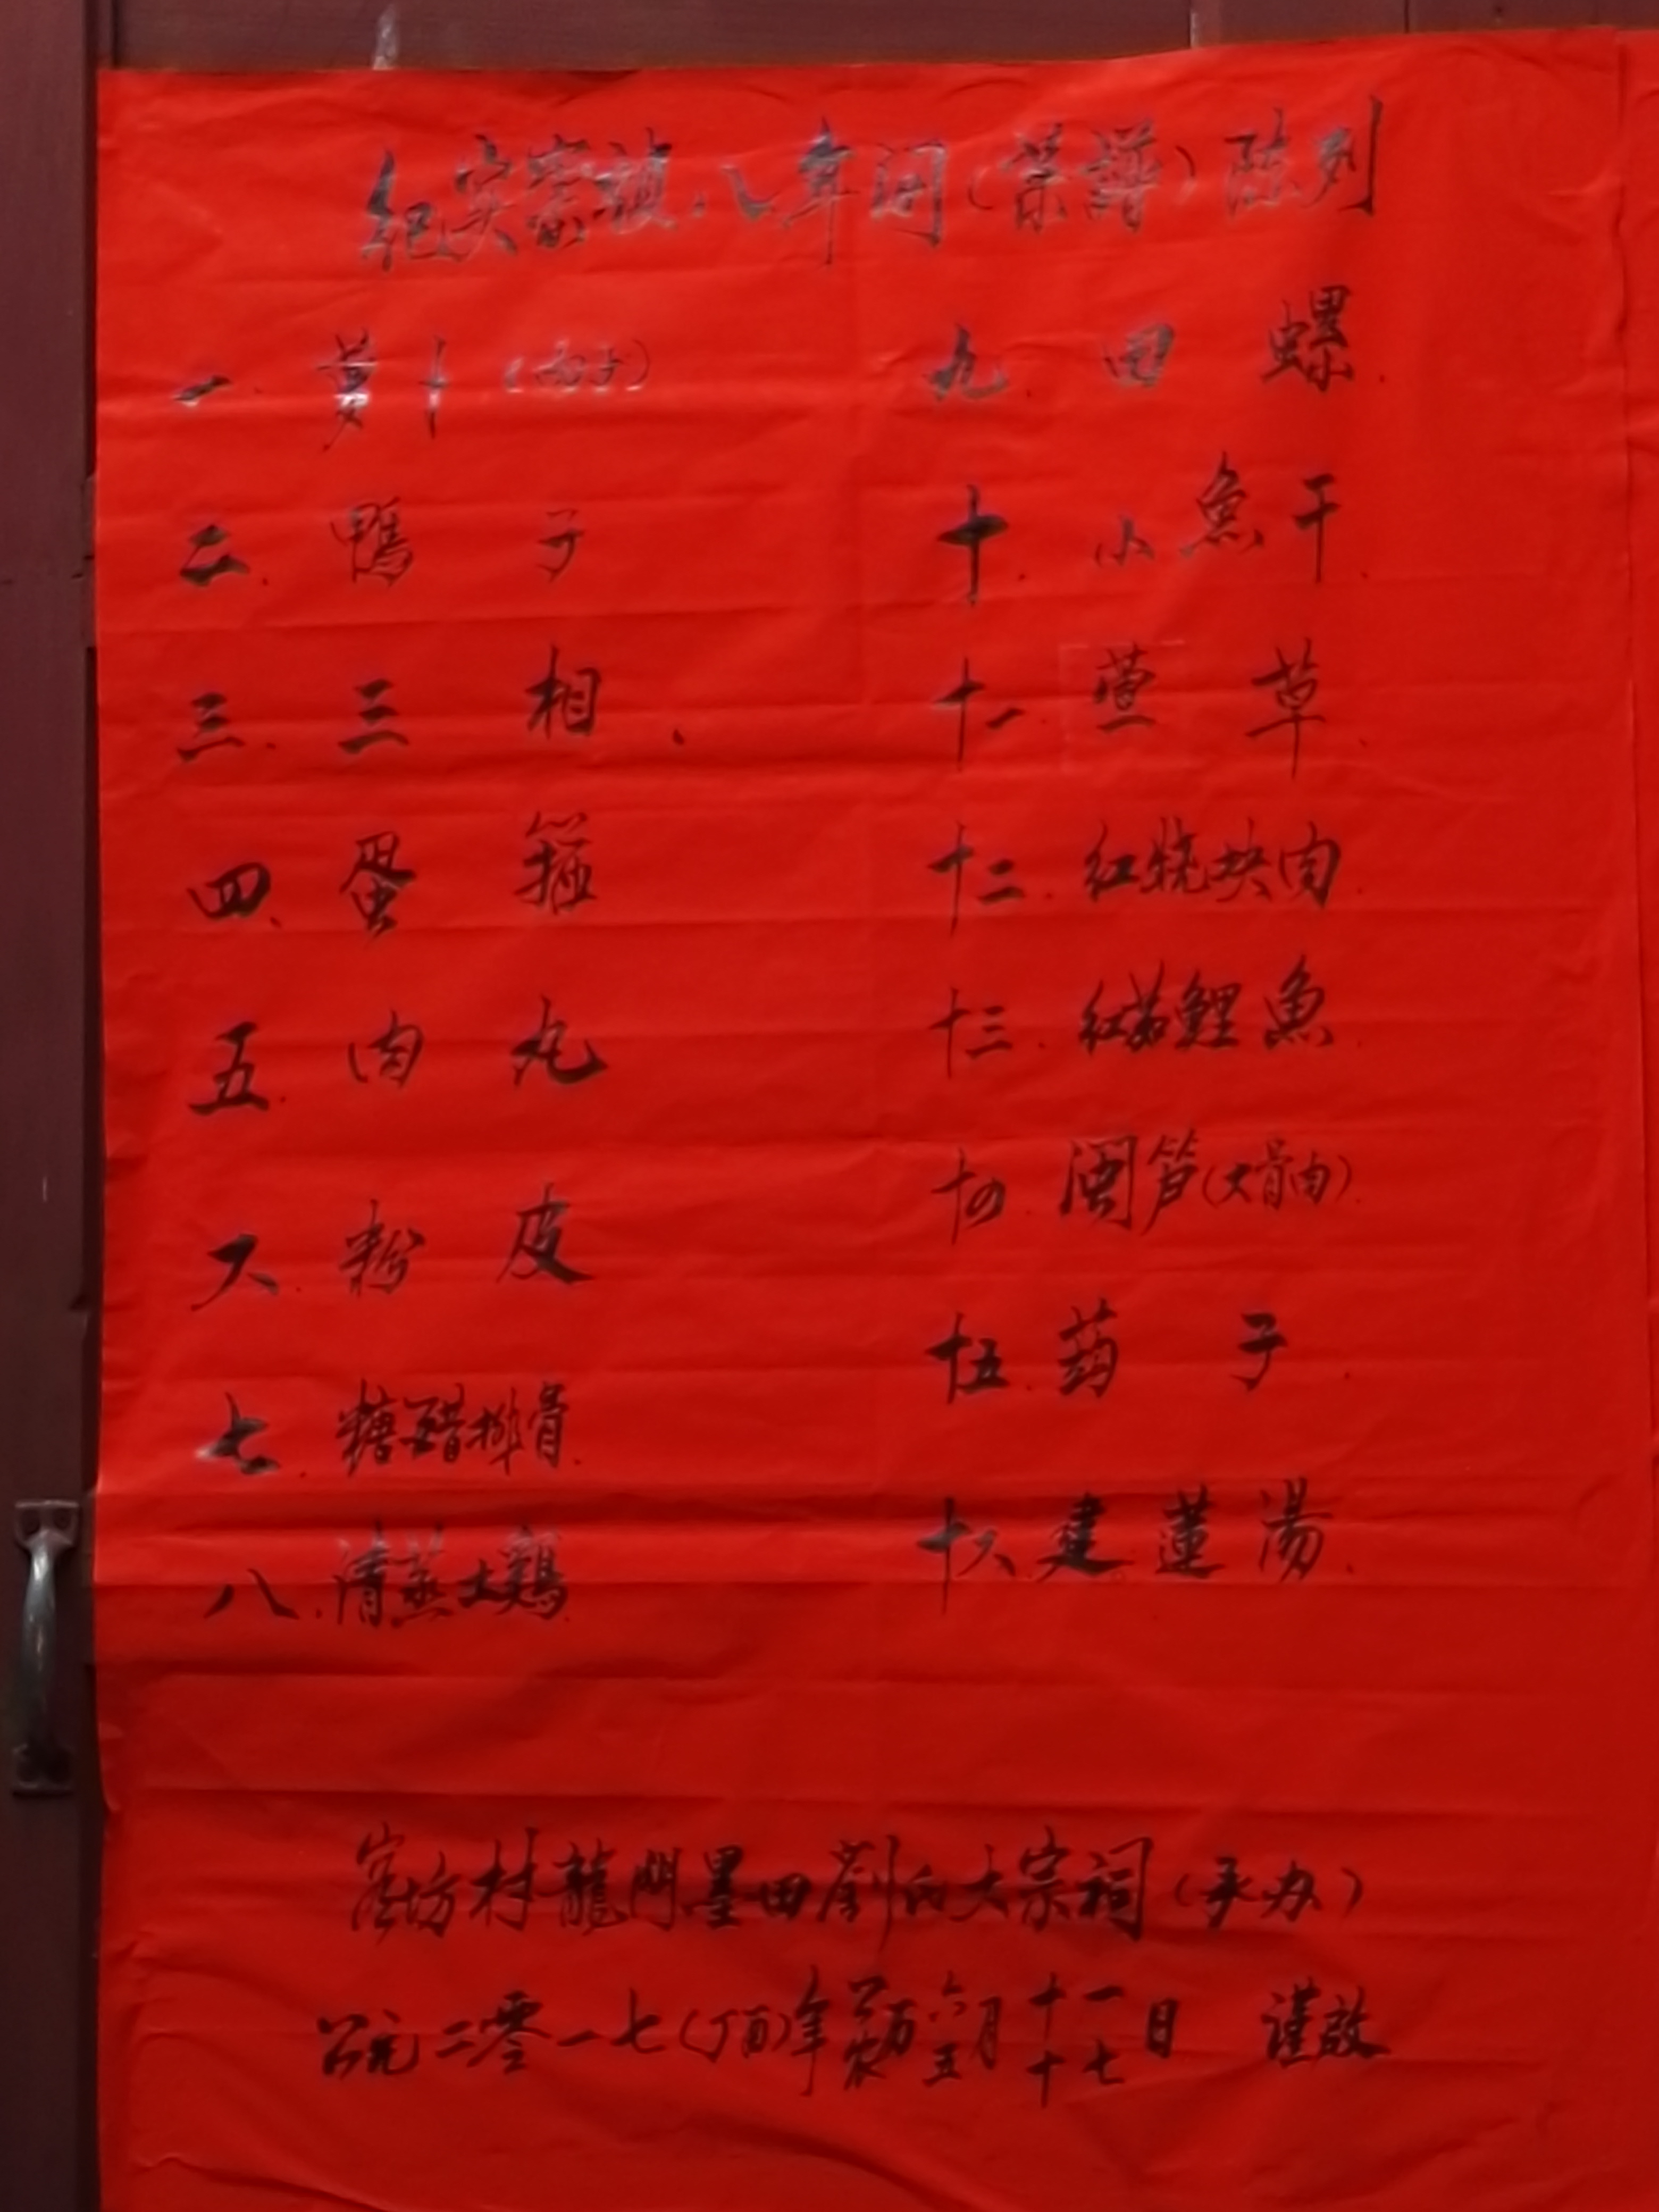 紀实崇禎八年间(菜譜)陈列
一. 萝卜
二. 鴨子
三. 三相.
四. 蛋箍
五. 肉丸
六. 粉皮
七. 糖醋排骨.
八. 清蒸土鷄.
九. 田螺.
十. 小魚干.
十一. 萱草.
十二. 红烧块肉.
十三. 红菇鯉魚.
十四. 闽笋(大骨肉).
十五. 葯子.
十六. 建蓮湯.
客坊村龍門墨田劉氏大宗祠(承办)
公元二零一七(丁酉)年公农历六五月十一十七日 謹啟